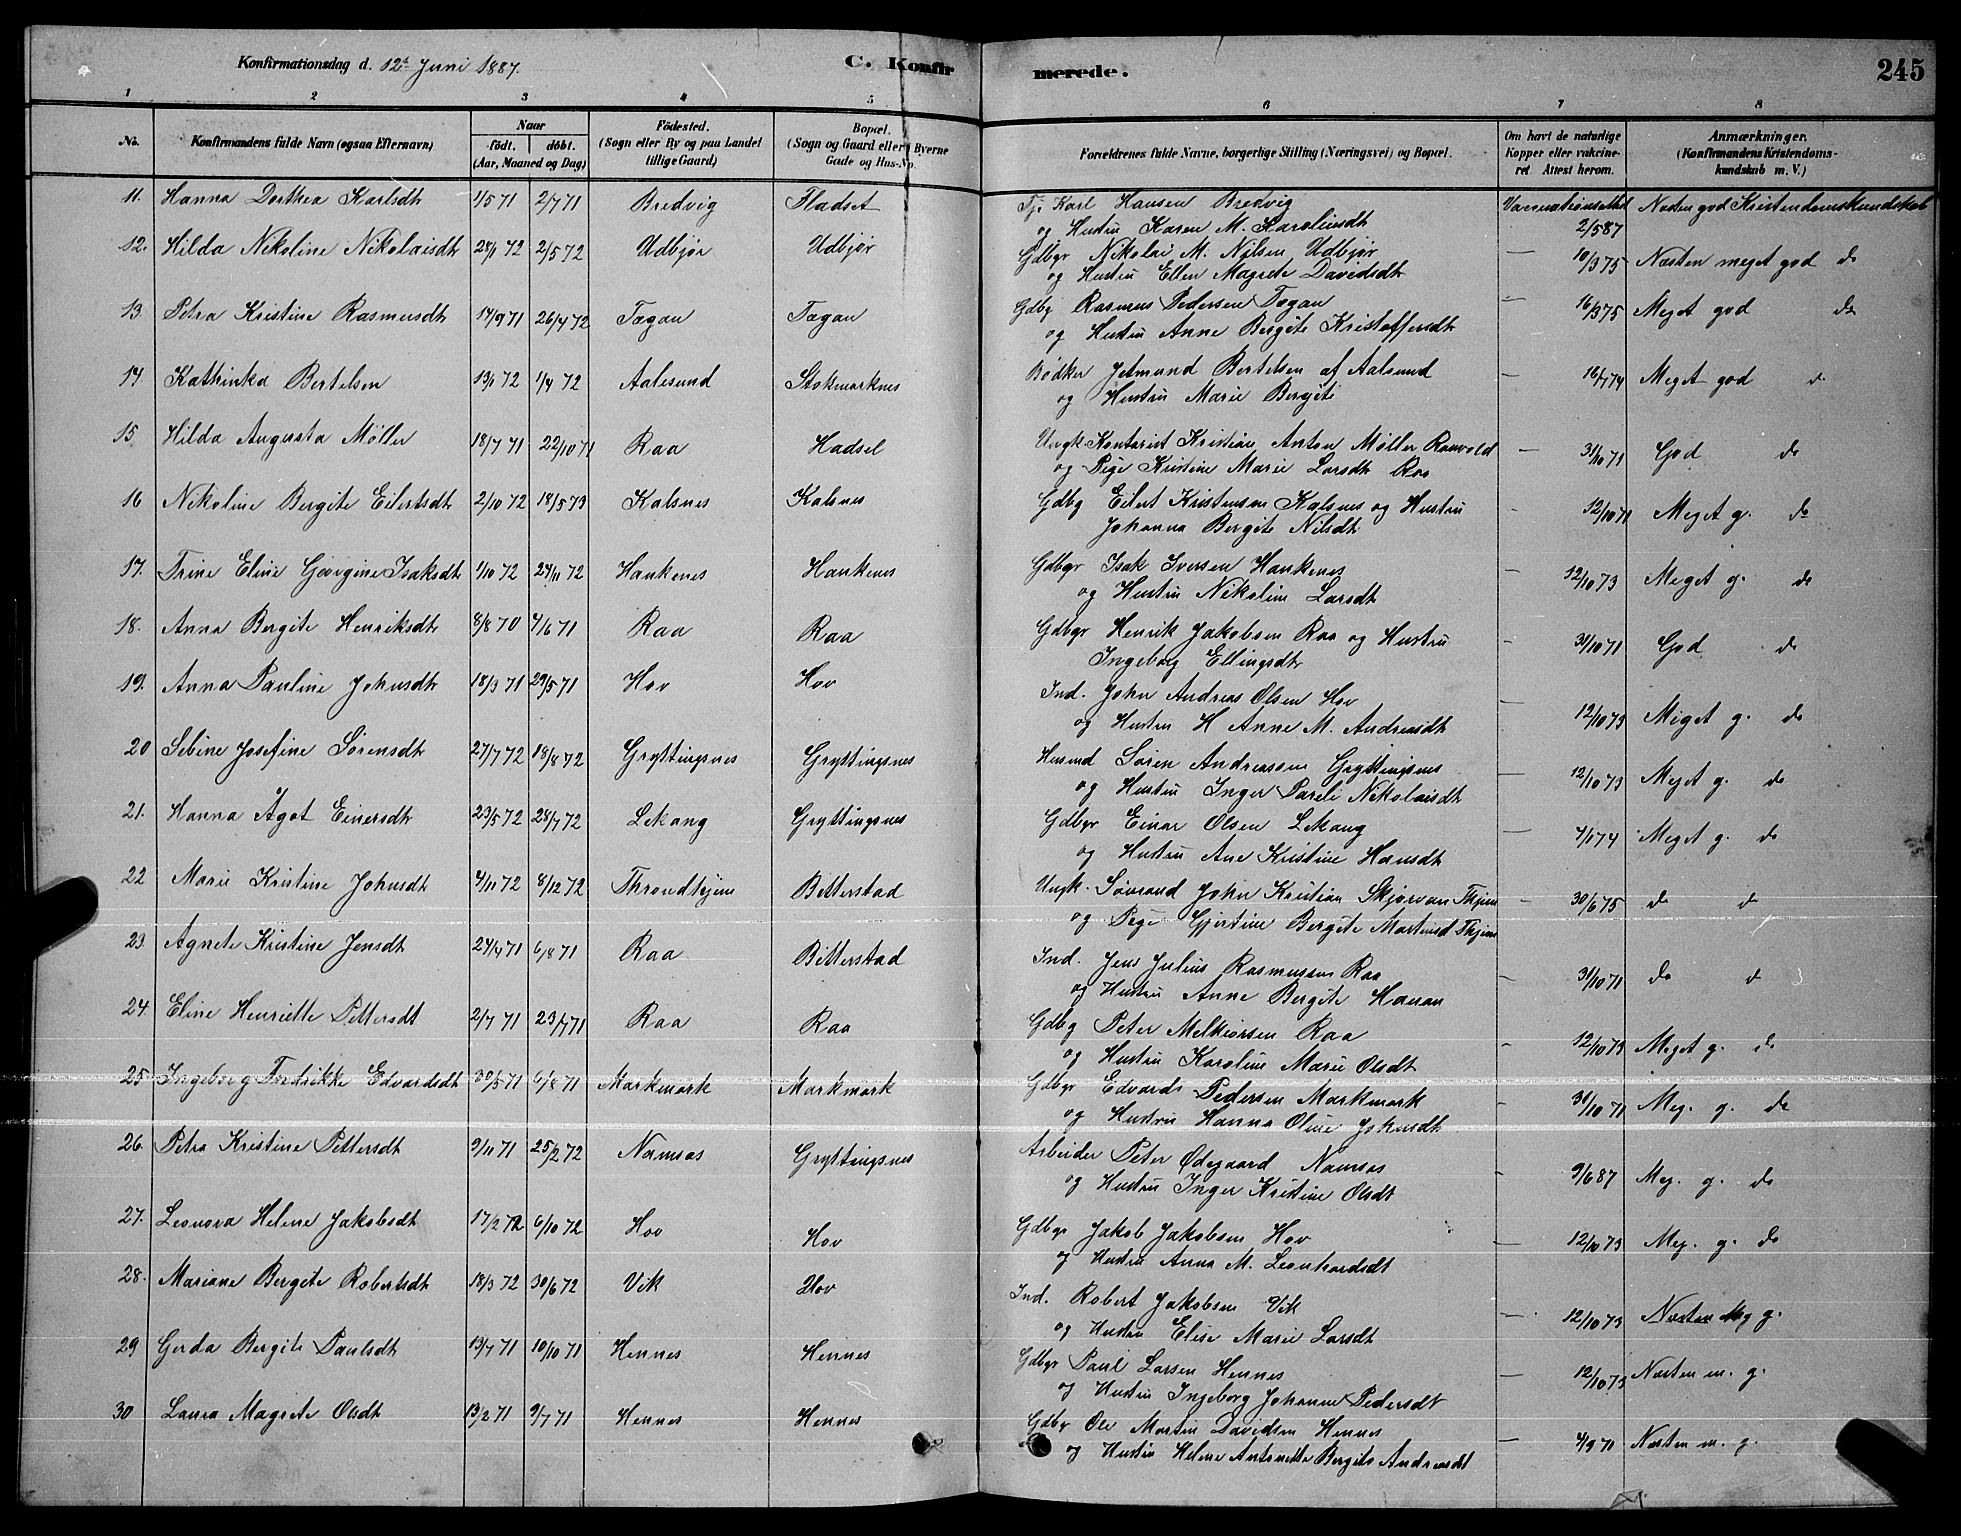 Konfirmationsdag d. 12te Juni 1887.
C. Konfirmerede.
245
1 2 3 4 5 6 7 8
No.
Konfirmandens fulde Navn (ogsaa Efternavn)
Naar
födt. döbt.
(Aar, Maaned og Dag)
Födested.
(Sogn eller By og paa Landet
tillige Gaard)
Bopæl.
(Sogn og Gaard eller i Byerne
Gade og Hus-No.
Forældrenes fulde Navne, borgerlige Stilling (Næringsvei) og Bopæl.
Om havt de naturlige
Kopper eller vakcineret. Attest herom.
Anmærkninger.
(Konfirmandens Kristendomskundskab m. V.)
11. Hanna Dorthea Karlsdtr 1/5 71 2/7 71 Bredvig Fladset Tje Karl Hansen Bredvig
og Hustru Karen M. Karoliusdt 2/5 87 Næsten god Kristendomskundskab
12. Hilda Nikoline Nikolaisdtr 28/1 72 2/5 72 Udbjör Udbjör Gdbgr Nikolai M. Nilsen Udbjör
og Hustru Ellen Magrete Davidsdtr — 10/3 75 Næsten meget god do
13. Petra Kristine Rasmusdtr 14/9 71 26/4 72 Tægan Tægan Gdbg Rasmus Pedersen Tægan
og Hustru Anne Bergite Kristoffersdtr — 16/3 75 Meget god do
14. Kathinka Bertelsen 13/1 72 1/4 72 Aalesund Stokmarknes Bödker Jetmund Bertelsen af Aalsund
og Hustru Marie Bergite — 16/7 74 Meget god do
15. Hilda Augusta Møller 18/7 71 22/10 71 Raa Hadsel Ungk Kontorist Kristian Anton Møller
og Pige Kristine Marie Larsdt Raa — 31/10 71 God do
16 Nikoline Bergite Eilertsdt 2/10 72 18/5 73 Kalsnes Kalsnes Gdbg Eilert Kristensen Kalsnes og Hustru
Johanna Bergite Nilsdt - 12/10 71 Meget g. do
17. Trine Eline Georgine Isaksdt 1/10 72 24/11 72 Haukenes Haukenes Gdbgr Isak Iversen Haukenes
og Hustru Nikoline Larsdt — 12/10 73 Meget g. do
18. Anna Bergite Henriksdtr 8/8 70 4/6 71 Raa Raa Gdbgr Henrik Jakobsen Raa og Hustru
Ingeborg Ellingsdtr — 31/10 71 God do
19. Anna Pauline Johnsdtr 18/3 71 29/5 71 Hov Hov Ind. John Andreas Olsen Hov
og Hustru H Anne M. Andreasdt — 12/10 73 Meget g. do
20 Sebine Josefine Sörensdtr 27/7 72 18/8 72 Gryttingsnes Gryttingsnes Husmd Sören Andreassen Gryttingsnes
og Hustru Inger Pareli Nikolaisdtr — 12/10 73 Meget g. do
21. Hanna Ågot Einersdtr 23/5 72 28/7 72 Lekang Gryttingsnes Gdbgr Einar Olsen Lekang
og Hustru Ane Kristine Hansdt — 4/1 74 Meget g. do
22 Marie Kristine Johnsdt 4/11 72 8/12 72 Throndhjem Bitterstad Ungk. John Kristian Skjörvan Thjem
og Pige Gjertine Bergite Martinsd Thjem — 30/6 75 do do
23. Agnete Kristine Jensdt 24/4 71 6/8 71 Raa Bitterstad Ind. Jens Julius Rasmussen Raa
og Hustru Anne Bergite Hanan — 31/10 71 do do
24. Eline Henriette Pettersdt 2/7 71 23/7 71 Raa Raa Gdbg Peter Melkiorsen Raa
og Hustru Karoline Marie Olsdt - 12/10 73 Meget g. do
25 Ingeborg Fredrikke Edvardsdt 30/5 71 6/8 71 Markmark Markmark Gdbgr Edvard Pedersen Markmark
og Hustru Hanna Oline Johnsdt. — 31/10 71 Meg. g. do
26. Petra Kristine Pettersdt 3/11 71 25/2 72 Namsos Gryttingsnes Arbeider Peter Ødegaard Namsos
og Hustru Inger Kristine Olsdt — 9/6 87 Meg. g. do
27. Leonora Helene Jakobsdt 17/2 72 6/10 72 Hov Hov Gdbgr Jakob Jakobsen Hov
og Hustru Anna M. Leonhardsdt — 12/10 73 Meg. g. do
28. Mariane Bergite Robertsdt 18/3 72 30/6 72 Vik Hov Ind. Robert Jakobsen Vik
og Hustru Elise Marie Larsdt — 12/10 73 Næsten Meg g.
29 Gerda Bergite Paulsdt 13/7 71 10/10 71 Hennes Hennes Gdbgr Paul Larsen Hennes
og Hustru Ingeborg Johanne Pedersdt — 12/10 73 Næsten m. g.
30 Laura Magrete Olsdt 13/2 71 9/7 71 Hennes Hennes Gdbgr Ole Martin Davidsen Hennes
og Hustru Helene Antonette Bergite Andreasdt — 4/9 71 Næsten m. g.